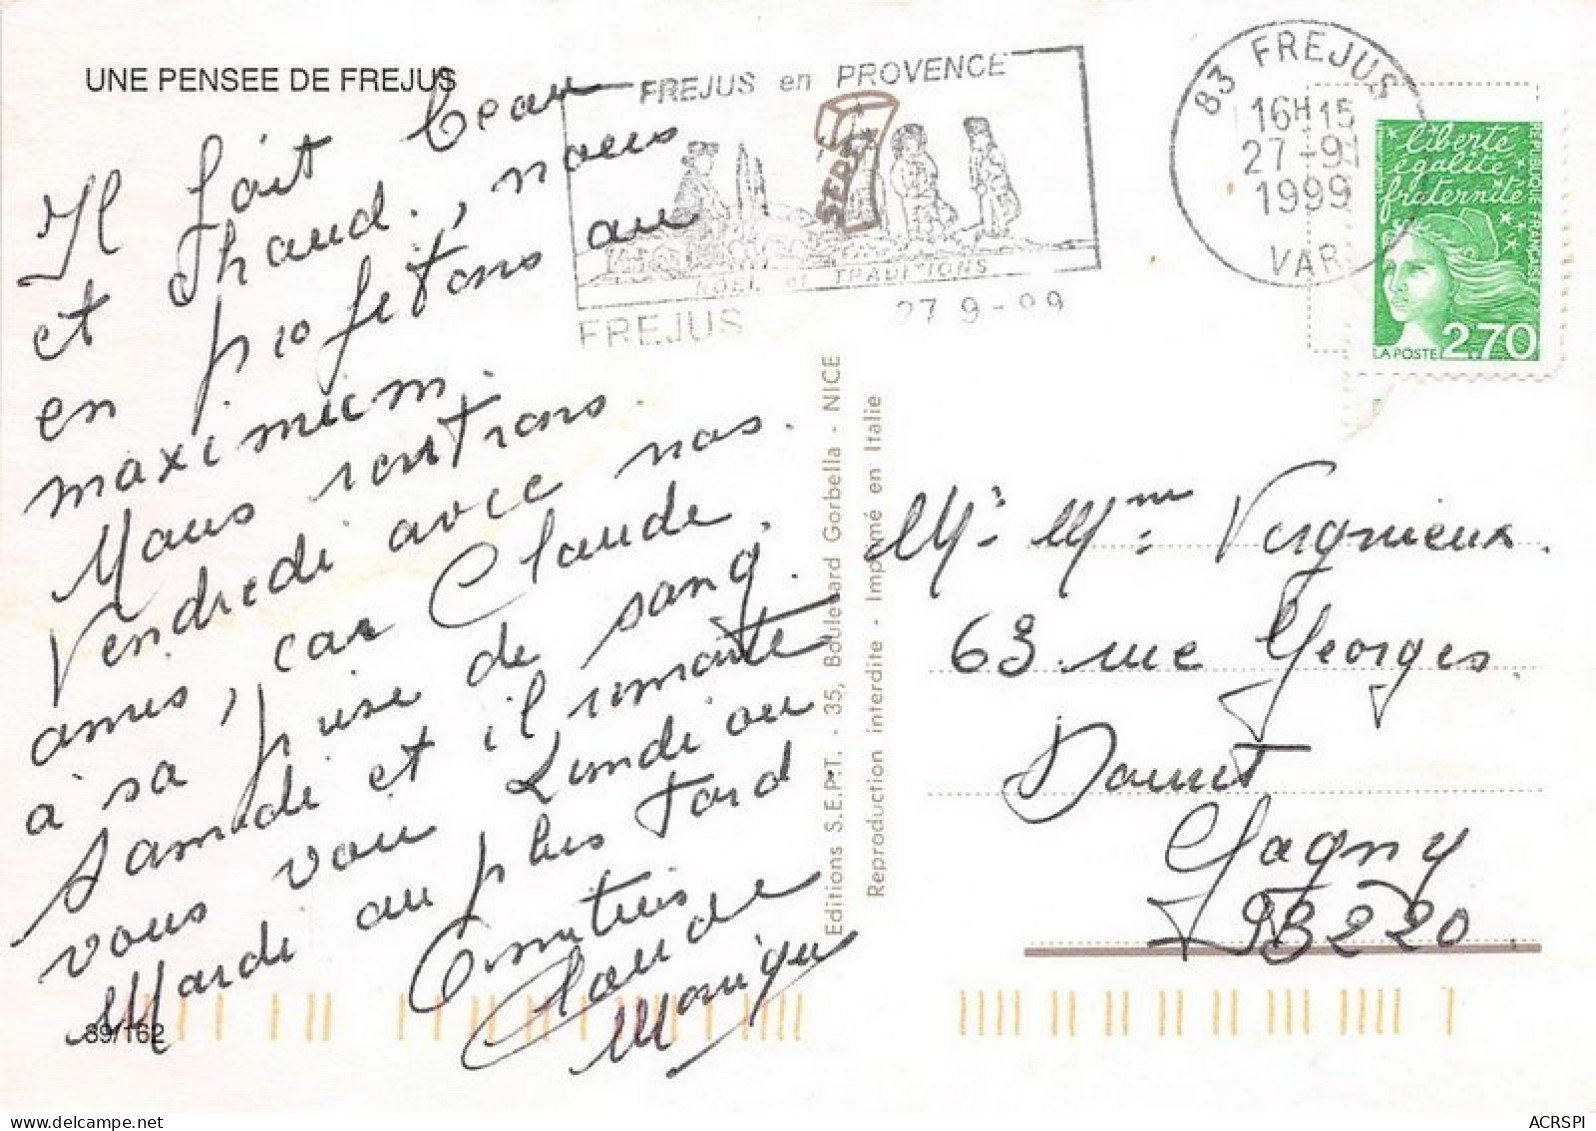 UNE PENSEE DE FREJUS
Il fait beau
et chaud, nous
en profitons au
maximum.
Nous rentrons
Vendredi avec nos
amis, car Claude
à sa prise de sang
Samedi et il remonte
vous voir Lundi ou
Mardi au plus tard
Amitiés
Claude
Monique
89/162
FREJUS en PROVENCE
SEPT
NOEL et TRADITIONS
FREJUS 27 9-99
83 FREJUS
16H15
27-9
1999
VAR
liberté
égalité
fraternité
REPUBLIQUE FRANÇAISE
LA POSTE 2,70
Editions S.E.P.T. - 35, Boulevard Gorbella - NICE
Reproduction interdite - Imprimé en Italie
Mr. Mme Vergnieux.
63 rue Georges
Gagny
93220
ACRSPI